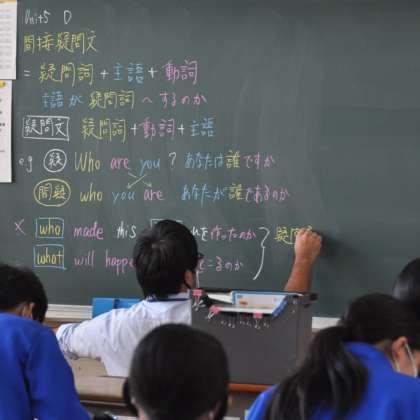 Unit5 D
間接疑問文
= 疑問詞 + 主語 + 動詞
主語が 疑問詞 へ するのか
疑問文 疑問詞 + 動詞 + 主語
e.g 疑 Who are you ? あなたは誰ですか
間疑 who you are あなたが誰であるのか
× who made this を作ったのか 疑問
what will happe こるのか